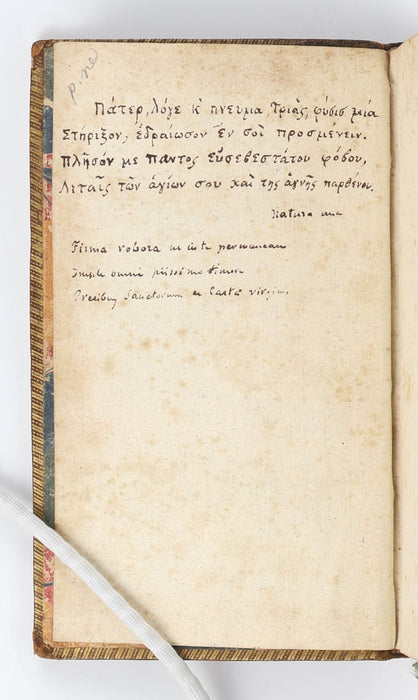 p. ne
Πάτερ, λόγε κ' πνευμα, τριὰς, φύσις μιά
Στηριξον, ἑδραίωσον ἐν σοὶ προσμένειν.
Πλῆσόν με παντος εὐσεβεστάτου φόβου,
Λιταῖς τῶν ἁγίων σου καὶ τῆς ἁγνῆς παρθένου.
Natura una
Firma robora ut in te permaneam
Imple omni piissimo timore
Precibus Sanctorum et Castæ virginis.